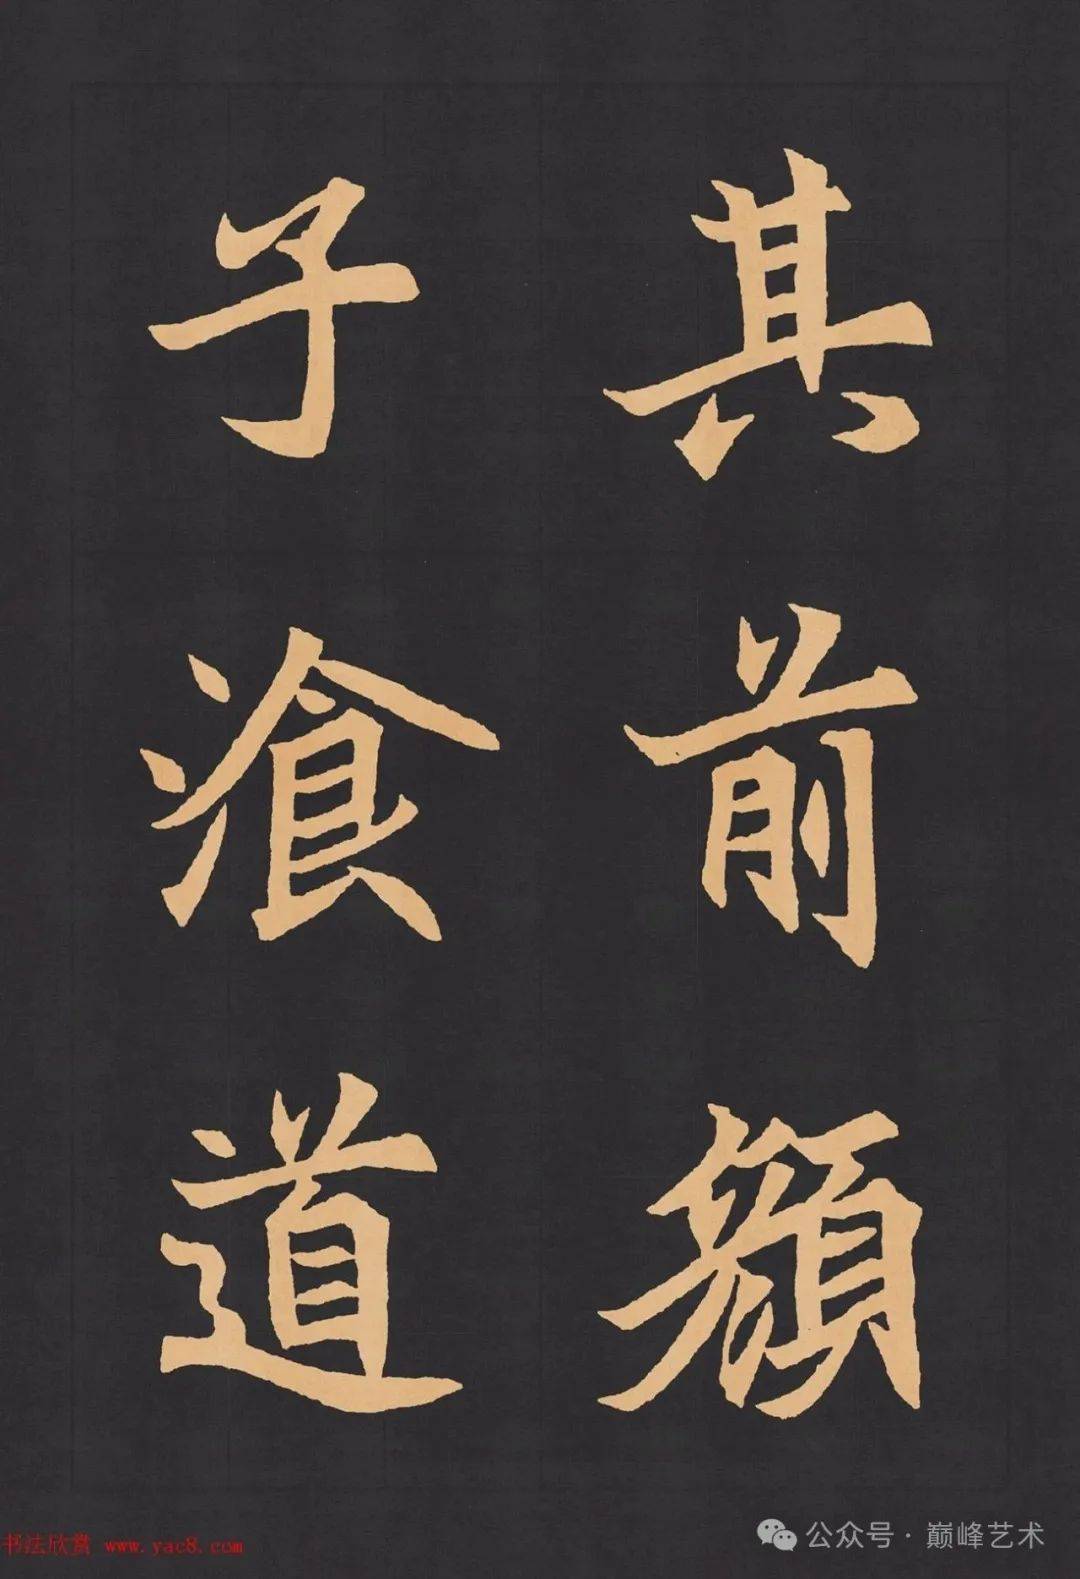 其前顏
子湌道
书法欣赏 www.yac8.com
公众号·巅峰艺术